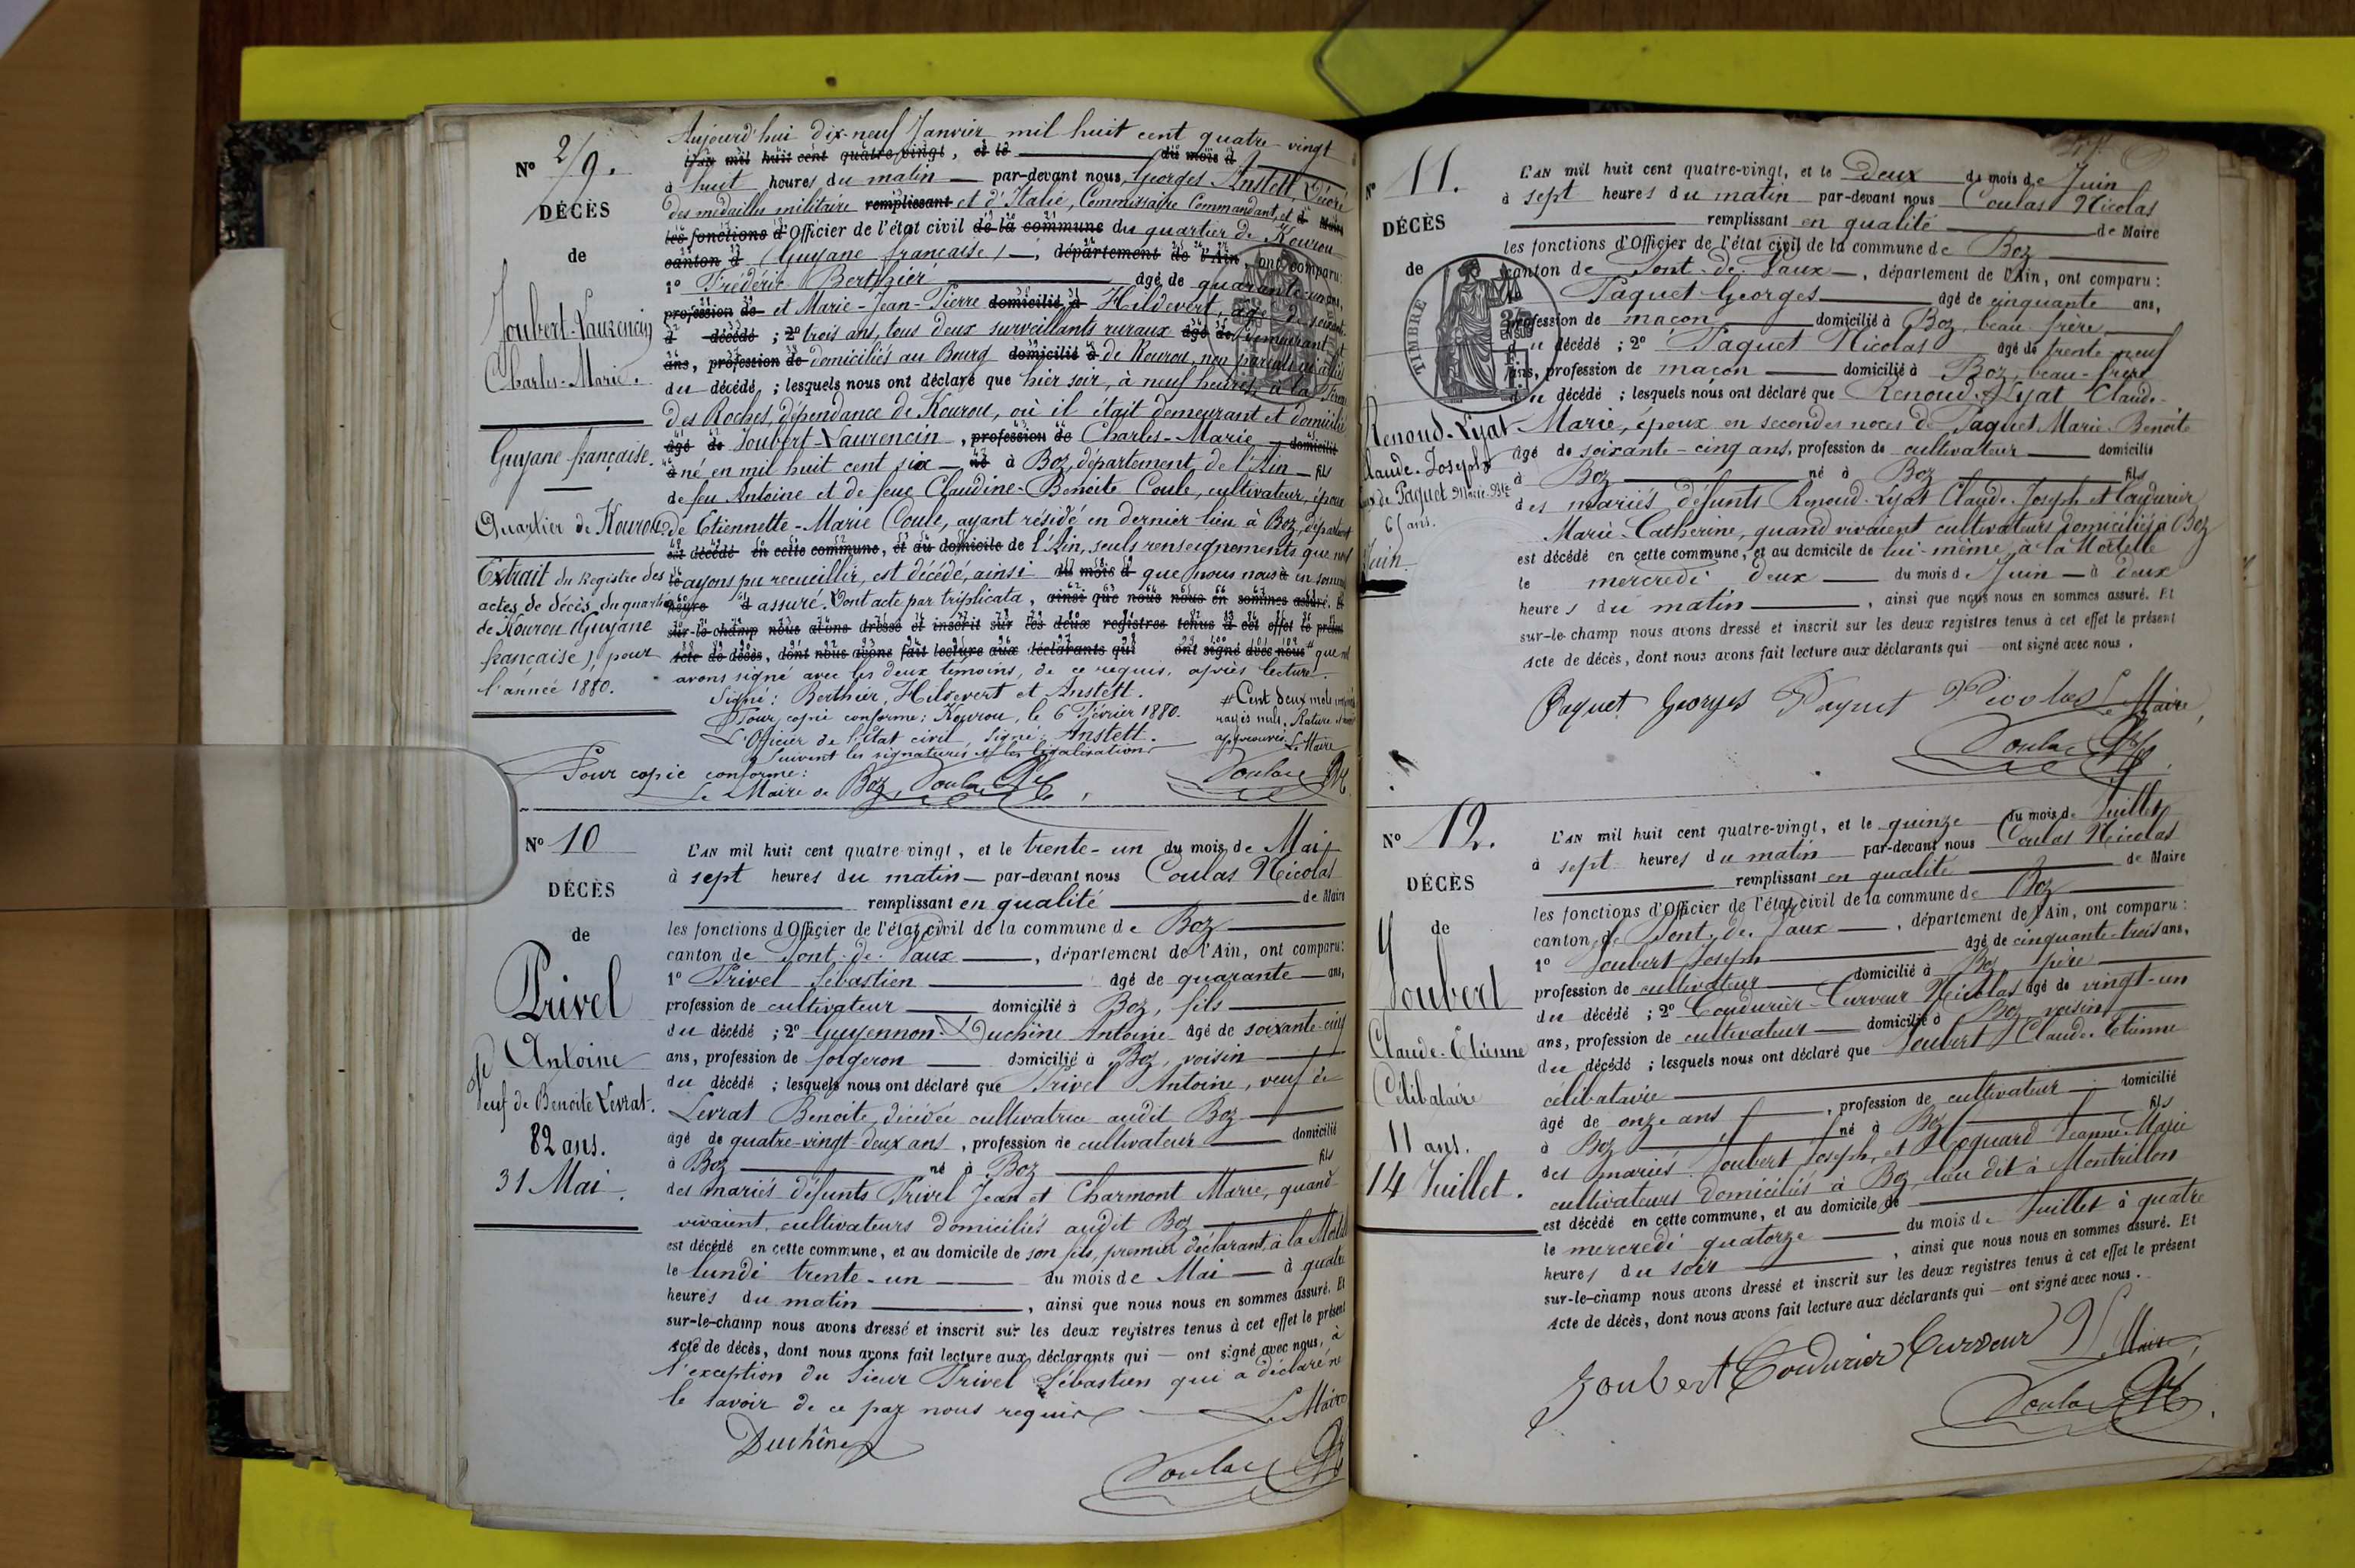 N° 2/9.
DÉCÈS
de
Joubert-Laurencin
Charles-Marie.
Guyane française.
Quartier de Kourou
Extrait du Registre des
actes de décès du quartier
de Kourou (Guyane
française), pour
l'année 1880.
Aujourd'hui dix-neuf Janvier mil huit cent quatre-vingt
L'an mil huit cent quatre-vingt, et le du mois d
à huit heures du matin par-devant nous, Georges Anstett, Décoré
des médailles militaire remplissant et d'Italie, Commissaire Commandant, et
les fonctions d'Officier de l'état civil de la commune du quartier de Kourou
canton d (Guyane française), département de l'Ain, ont comparu:
1° Frédéric Berthier âgé de quarante-un ans,
profession de et Marie-Jean-Pierre domicilié à Hildevert, âgé de soixante
d décédé ; 2° trois ans, tous deux surveillants ruraux âgé de demeurant et
ans, profession de domiciliés au Bourg domicilié à de Kourou, non parents ni alliés
du décédé ; lesquels nous ont déclaré que hier soir, à neuf heures, à la
des Roches, dépendance de Kourou, où il était demeurant et domicilié
âgé de Joubert-Laurencin, profession de Charles-Marie domicilié
à né en mil huit cent six né à Boz, département de l'Ain fils
de feu Antoine et de feue Claudine-Benoite Coule, cultivateur, époux
de Etiennette-Marie Coule, ayant résidé en dernier lieu à Boz, département
est décédé en cette commune, et au domicile de l'Ain, seuls renseignements que nous
le ayons pu recueillir, est décédé, ainsi du mois d que nous nous en sommes
heure d assuré. Dont acte par triplicata, ainsi que nous nous en sommes assuré. Et
sur-le-champ nous avons dressé et inscrit sur les deux registres tenus à cet effet le présent
acte de décès, dont nous avons fait lecture aux déclarants qui ont signé avec nous que nous
avons signé avec les deux témoins, de ce requis, après lecture.
Signé: Berthier, Hildevert et Anstett.
Pour copie conforme: Kourou, le 6 Février 1880.
L'Officier de l'état civil, signé: Anstett.
Suivent les signatures et les légalisations
# Cent deux mots
rayés nuls.
approuvés. Le Maire
Pour copie conforme:
Le Maire de Boz, Coulas
Coulas
N° 10
DÉCÈS
de
Privel
Antoine
veuf de Benoite Levrat.
82 ans.
31 Mai.
L'AN mil huit cent quatre-vingt, et le trente-un du mois de Mai
à sept heures du matin par-devant nous Coulas Nicolas
remplissant en qualité de Maire
les fonctions d'Officier de l'état civil de la commune de Boz
canton de Pont-de-Vaux, département de l'Ain, ont comparu:
1° Privel Sébastien âgé de quarante ans,
profession de cultivateur domicilié à Boz, fils
du décédé ; 2° Guyennon-Duchène Antoine âgé de soixante-cinq
ans, profession de forgeron domicilié à Boz, voisin
du décédé ; lesquels nous ont déclaré que Privel Antoine, veuf de
Levrat Benoite, décédée cultivatrice audit Boz
âgé de quatre-vingt-deux ans, profession de cultivateur domicilié
à Boz né à Boz fils
des mariés défunts Privel Jean et Charmont Marie, quand
vivaient cultivateurs domiciliés audit Boz
est décédé en cette commune, et au domicile de son fils, premier déclarant, à la
le lundi trente-un du mois de Mai à quatre
heures du matin, ainsi que nous nous en sommes assuré. Et
sur-le-champ nous avons dressé et inscrit sur les deux registres tenus à cet effet le présent
acte de décès, dont nous avons fait lecture aux déclarants qui ont signé avec nous, à
l'exception du sieur Privel Sébastien qui a déclaré ne
le savoir de ce par nous requis Le Maire
Duchène
Coulas
N° 11.
DÉCÈS
de
TIMBRE
Renoud-Lyat
Claude-Joseph
époux de Paquet Marie-Bte
65 ans.
Juin.
L'AN mil huit cent quatre-vingt, et le Deux du mois de Juin
à sept heures du matin par-devant nous Coulas Nicolas
remplissant en qualité de Maire
les fonctions d'Officier de l'état civil de la commune de Boz
canton de Pont-de-Vaux, département de l'Ain, ont comparu:
Paquet Georges âgé de cinquante ans,
profession de maçon domicilié à Boz, beau-frère
du décédé ; 2° Paquet Nicolas âgé de trente-neuf
ans, profession de maçon domicilié à Boz, beau-frère
du décédé ; lesquels nous ont déclaré que Renoud-Lyat Claude-
Marie, époux en secondes noces de Paquet Marie-Benoite
âgé de soixante-cinq ans, profession de cultivateur domicilié
à Boz né à Boz fils
des mariés défunts Renoud-Lyat Claude-Joseph et Coudurier
Marie-Catherine, quand vivaient cultivateurs domiciliés à Boz
est décédé en cette commune, et au domicile de lui-même, à la
le mercredi deux du mois de Juin à deux
heures du matin, ainsi que nous nous en sommes assuré. Et
sur-le-champ nous avons dressé et inscrit sur les deux registres tenus à cet effet le présent
acte de décès, dont nous avons fait lecture aux déclarants qui ont signé avec nous.
Paquet Georges Paquet Nicolas Le Maire,
Coulas
N° 12.
DÉCÈS
de
Joubert
Claude-Etienne
Célibataire
11 ans.
14 Juillet.
L'AN mil huit cent quatre-vingt, et le quinze du mois de Juillet
à sept heures du matin par-devant nous Coulas Nicolas
remplissant en qualité de Maire
les fonctions d'Officier de l'état civil de la commune de Boz
canton de Pont-de-Vaux, département de l'Ain, ont comparu:
1° Joubert Joseph âgé de cinquante-trois ans,
profession de cultivateur domicilié à Boz père
du décédé ; 2° Coudurier-Curveur Nicolas âgé de vingt-un
ans, profession de cultivateur domicilié à Boz voisin
du décédé ; lesquels nous ont déclaré que Joubert Claude-Etienne
célibataire
âgé de onze ans, profession de cultivateur domicilié
à Boz né à Boz fils
des mariés Joubert Joseph, et Hoguard Jeanne-Marie
cultivateurs domiciliés à Boz, lieu dit à Montrillon
est décédé en cette commune, et au domicile de
le mercredi quatorze du mois de Juillet à quatre
heures du soir, ainsi que nous nous en sommes assuré. Et
sur-le-champ nous avons dressé et inscrit sur les deux registres tenus à cet effet le présent
acte de décès, dont nous avons fait lecture aux déclarants qui ont signé avec nous.
Joubert Coudurier Curveur Le Maire,
Coulas